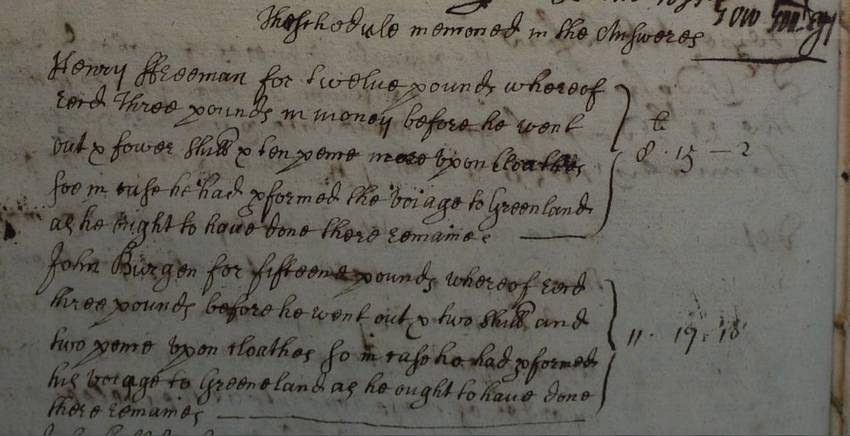 The schedule menconed in the Answere
Henry Freeman for twelve pounds whereof
recd three pounds in money before he went
out & fower shill & ten pence more upon Cloathes
soe in case he had pformed the voiage to Greenland
as he ought to have done there remaines
li
8 . 15 — 2
John Burgen for fifteene pounds whereof recd
three pounds before he went out & two shill and
two pence upon cloathes so in case he had pformed
his voiage to Greeneland as he ought to have done
there remaines
11 . 19 . 18